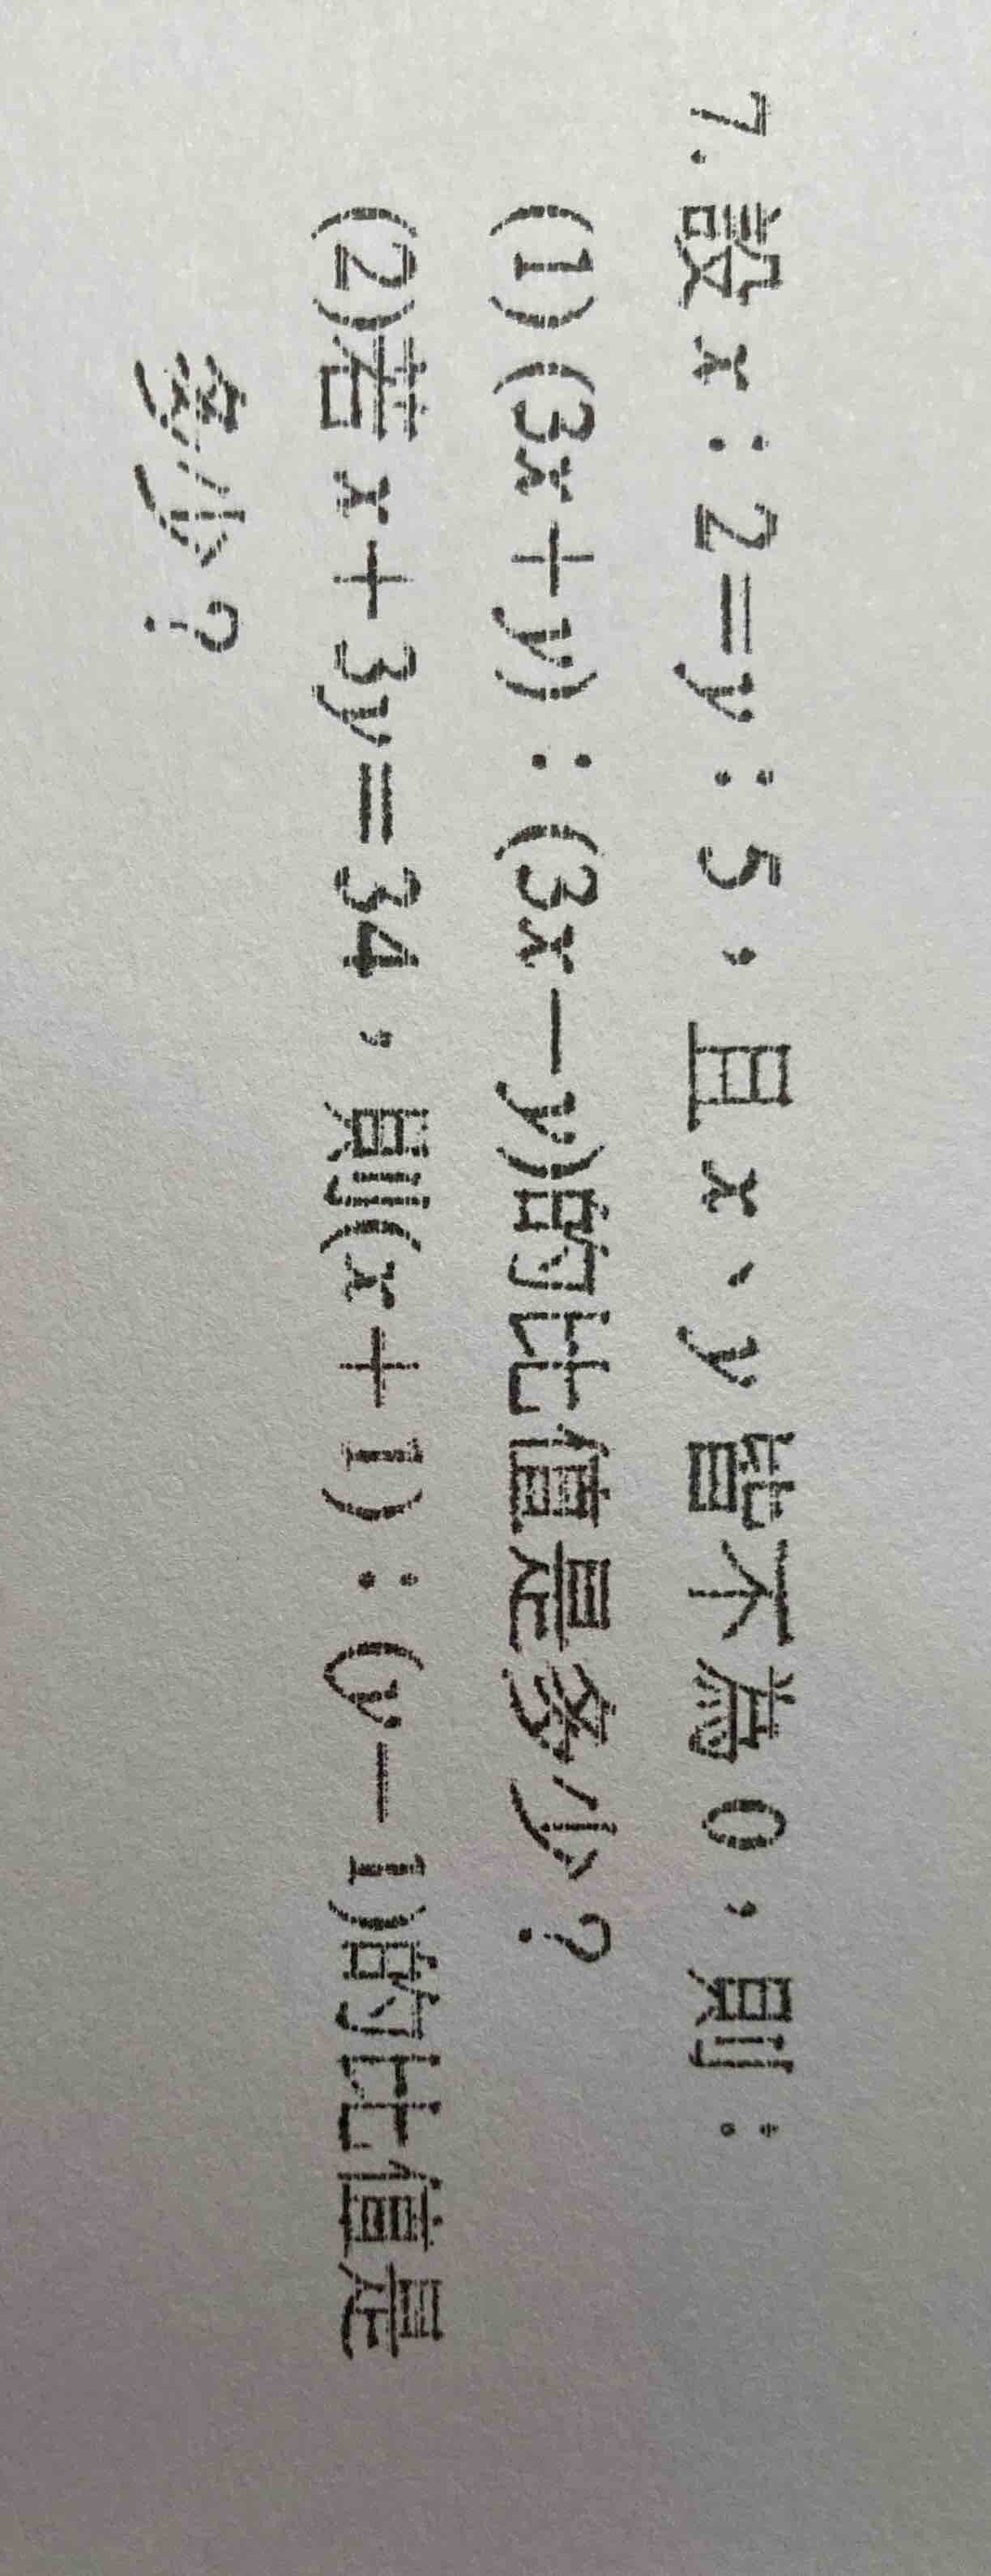 7. 設 x：2＝y：5，且 x、y 皆不為 0，則：
(1)(3x＋y)：(3x－y)的比值是多少？
(2)若 x＋3y＝34，則(x＋1)：(y－1)的比值是
多少？